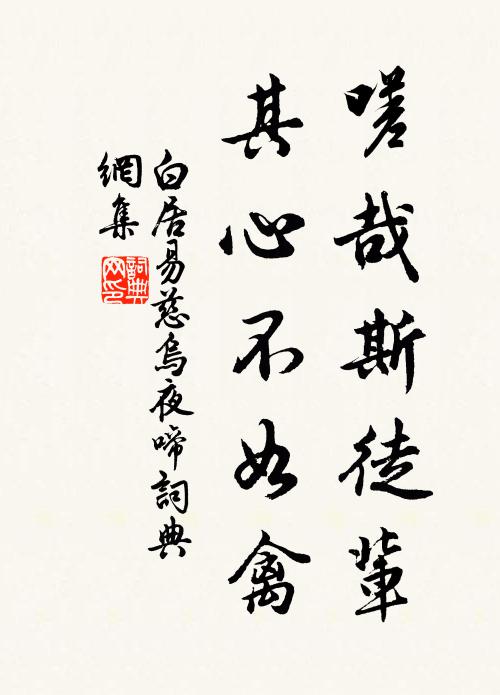 嗟哉斯徒輩
其心不如禽
白居易慈烏夜啼詞典
網集
詞典
网印